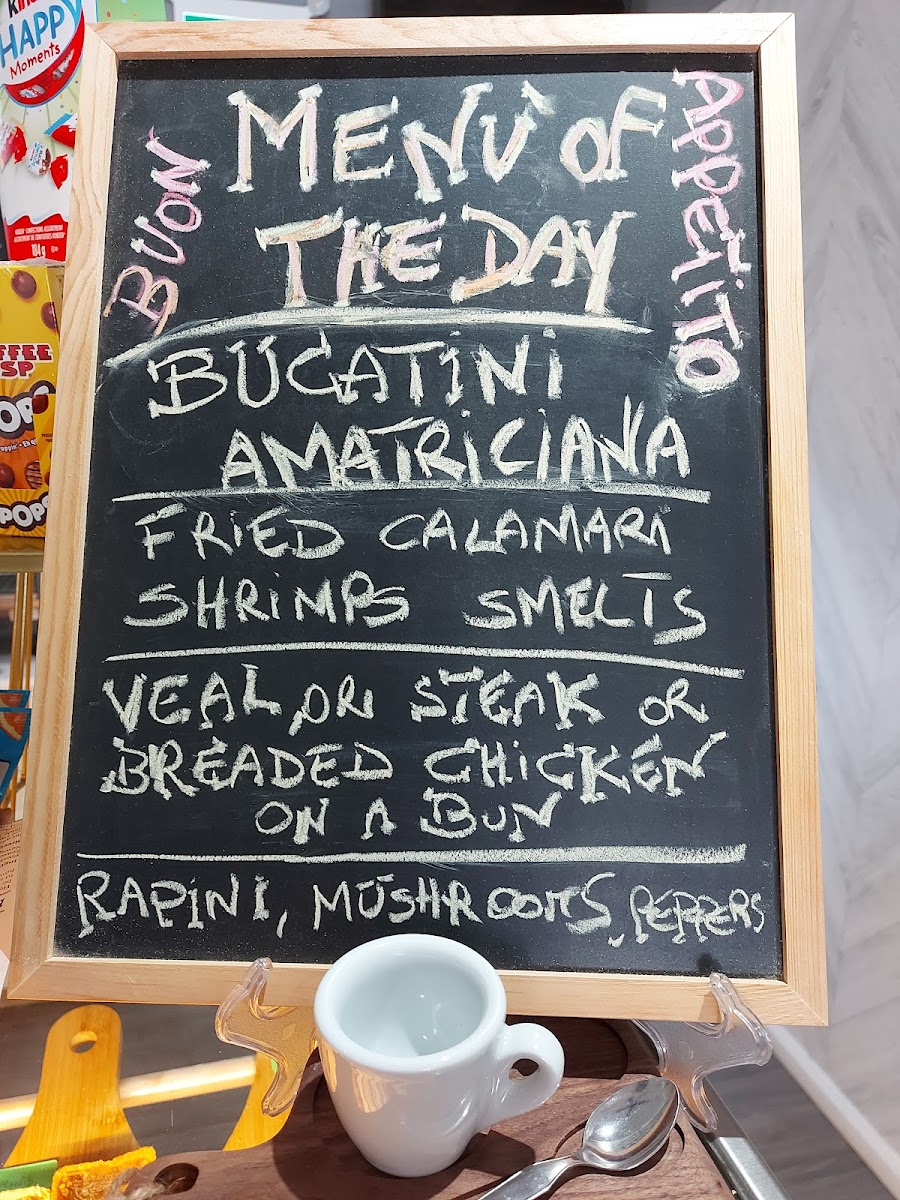 Kinder
HAPPY
Moments
184 g
BUON
MENÙ OF
THE DAY
APPETITO
BUCATINI
AMATRICIANA
FRIED CALAMARI
SHRIMPS SMELTS
VEAL OR STEAK OR
BREADED CHICKEN
ON A BUN
RAPINI, MUSHROOMS, PEPPERS